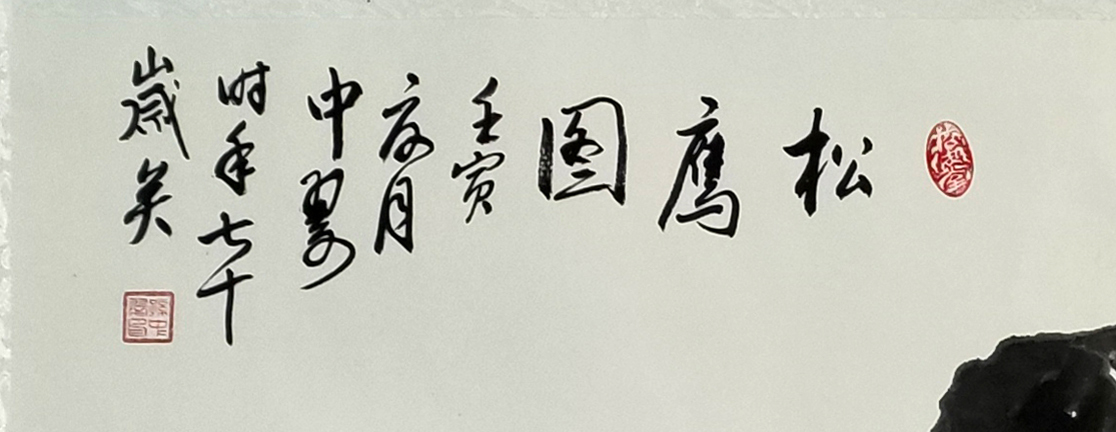 松鹰图
壬寅
夏月
中翠
时年七十
岁矣